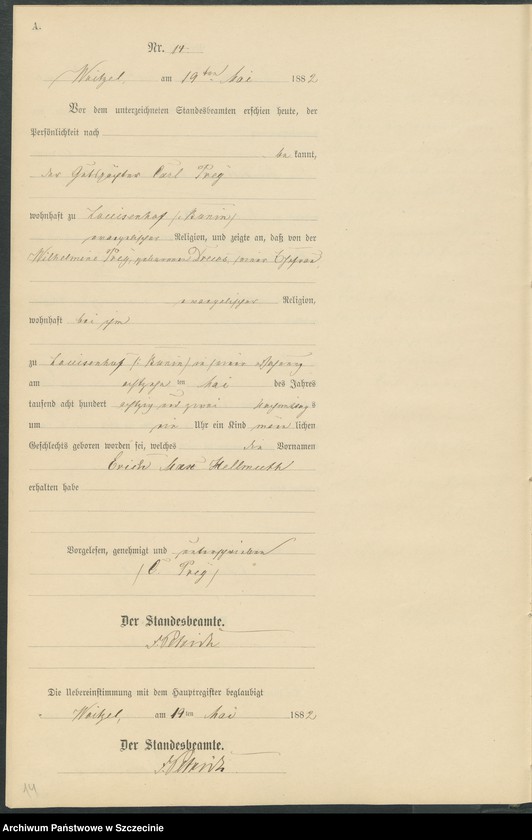 A.
Nr. 19.
Weitzel am 19ten Mai 1882
Vor dem unterzeichneten Standesbeamten erschien heute, der
Persönlichkeit nach
be kannt,
der Carl
wohnhaft zu Louisenhof
evangelischer Religion, und zeigte an, daß von der
Wilhelmine geborenen seiner Ehefrau
evangelischer Religion,
wohnhaft bei ihm
zu Louisenhof in seiner Wohnung
am ten Mai des Jahres
tausend acht hundert achtzig und zwei Nachmittags
um ein Uhr ein Kind männ lichen
Geschlechts geboren worden sei, welches die Vornamen
Erich Max Hellmuth
erhalten habe
Vorgelesen, genehmigt und unterschrieben
C.
Der Standesbeamte.
Die Uebereinstimmung mit dem Hauptregister beglaubigt
Weitzel, am 19ten Mai 1882
Der Standesbeamte.
14
Archiwum Państwowe w Szczecinie